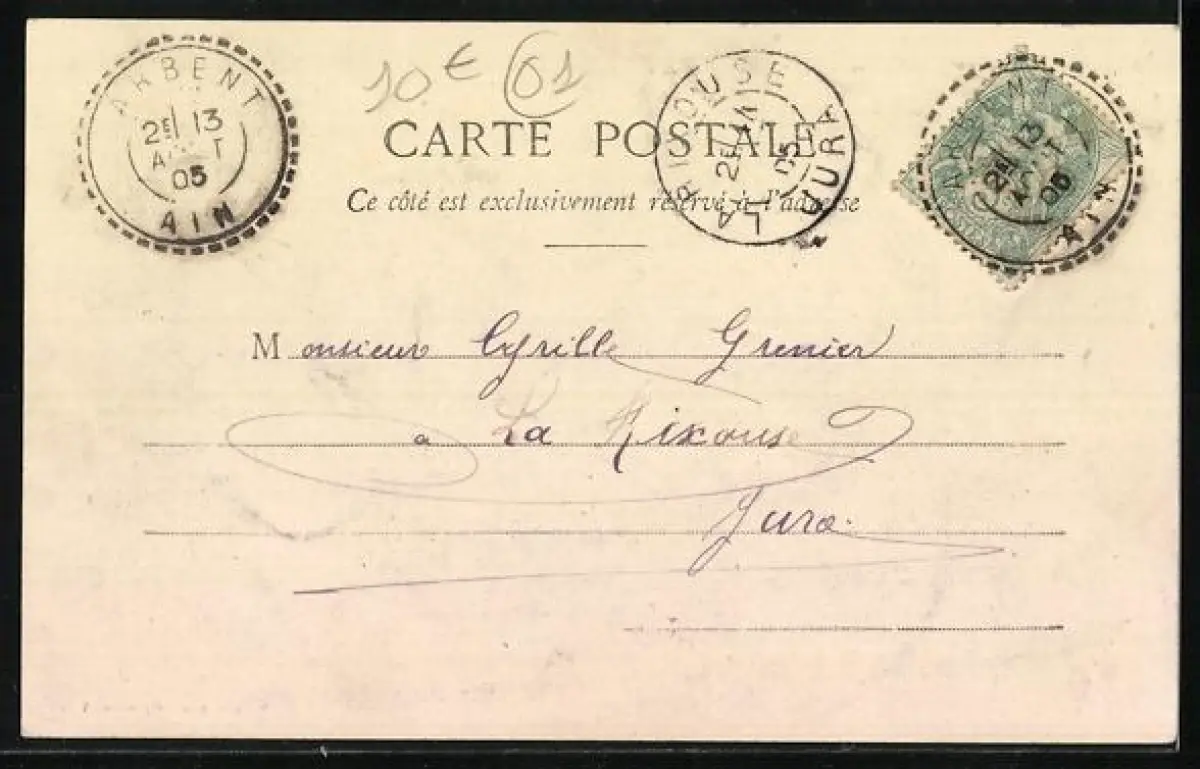 ARBENT
2E 13
AOUT
05
AIN
10 € 01
LA RIXOUSE
2E
05
JURA
ARBENT
2E 13
05
AIN
CARTE POSTALE
Ce côté est exclusivement réservé à l'adresse
Monsieur Cyrille Grenier
à La Rixouse
Jura